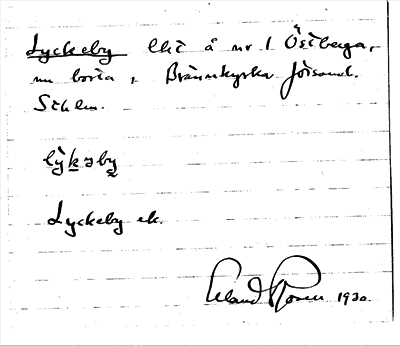 Lyckeby lht å nr 1 Östberga,
nu borta, Brännkyrka församl.
Sthlm.
lỳkəby
Lyckeby ek.
Erland Rosén 1930.